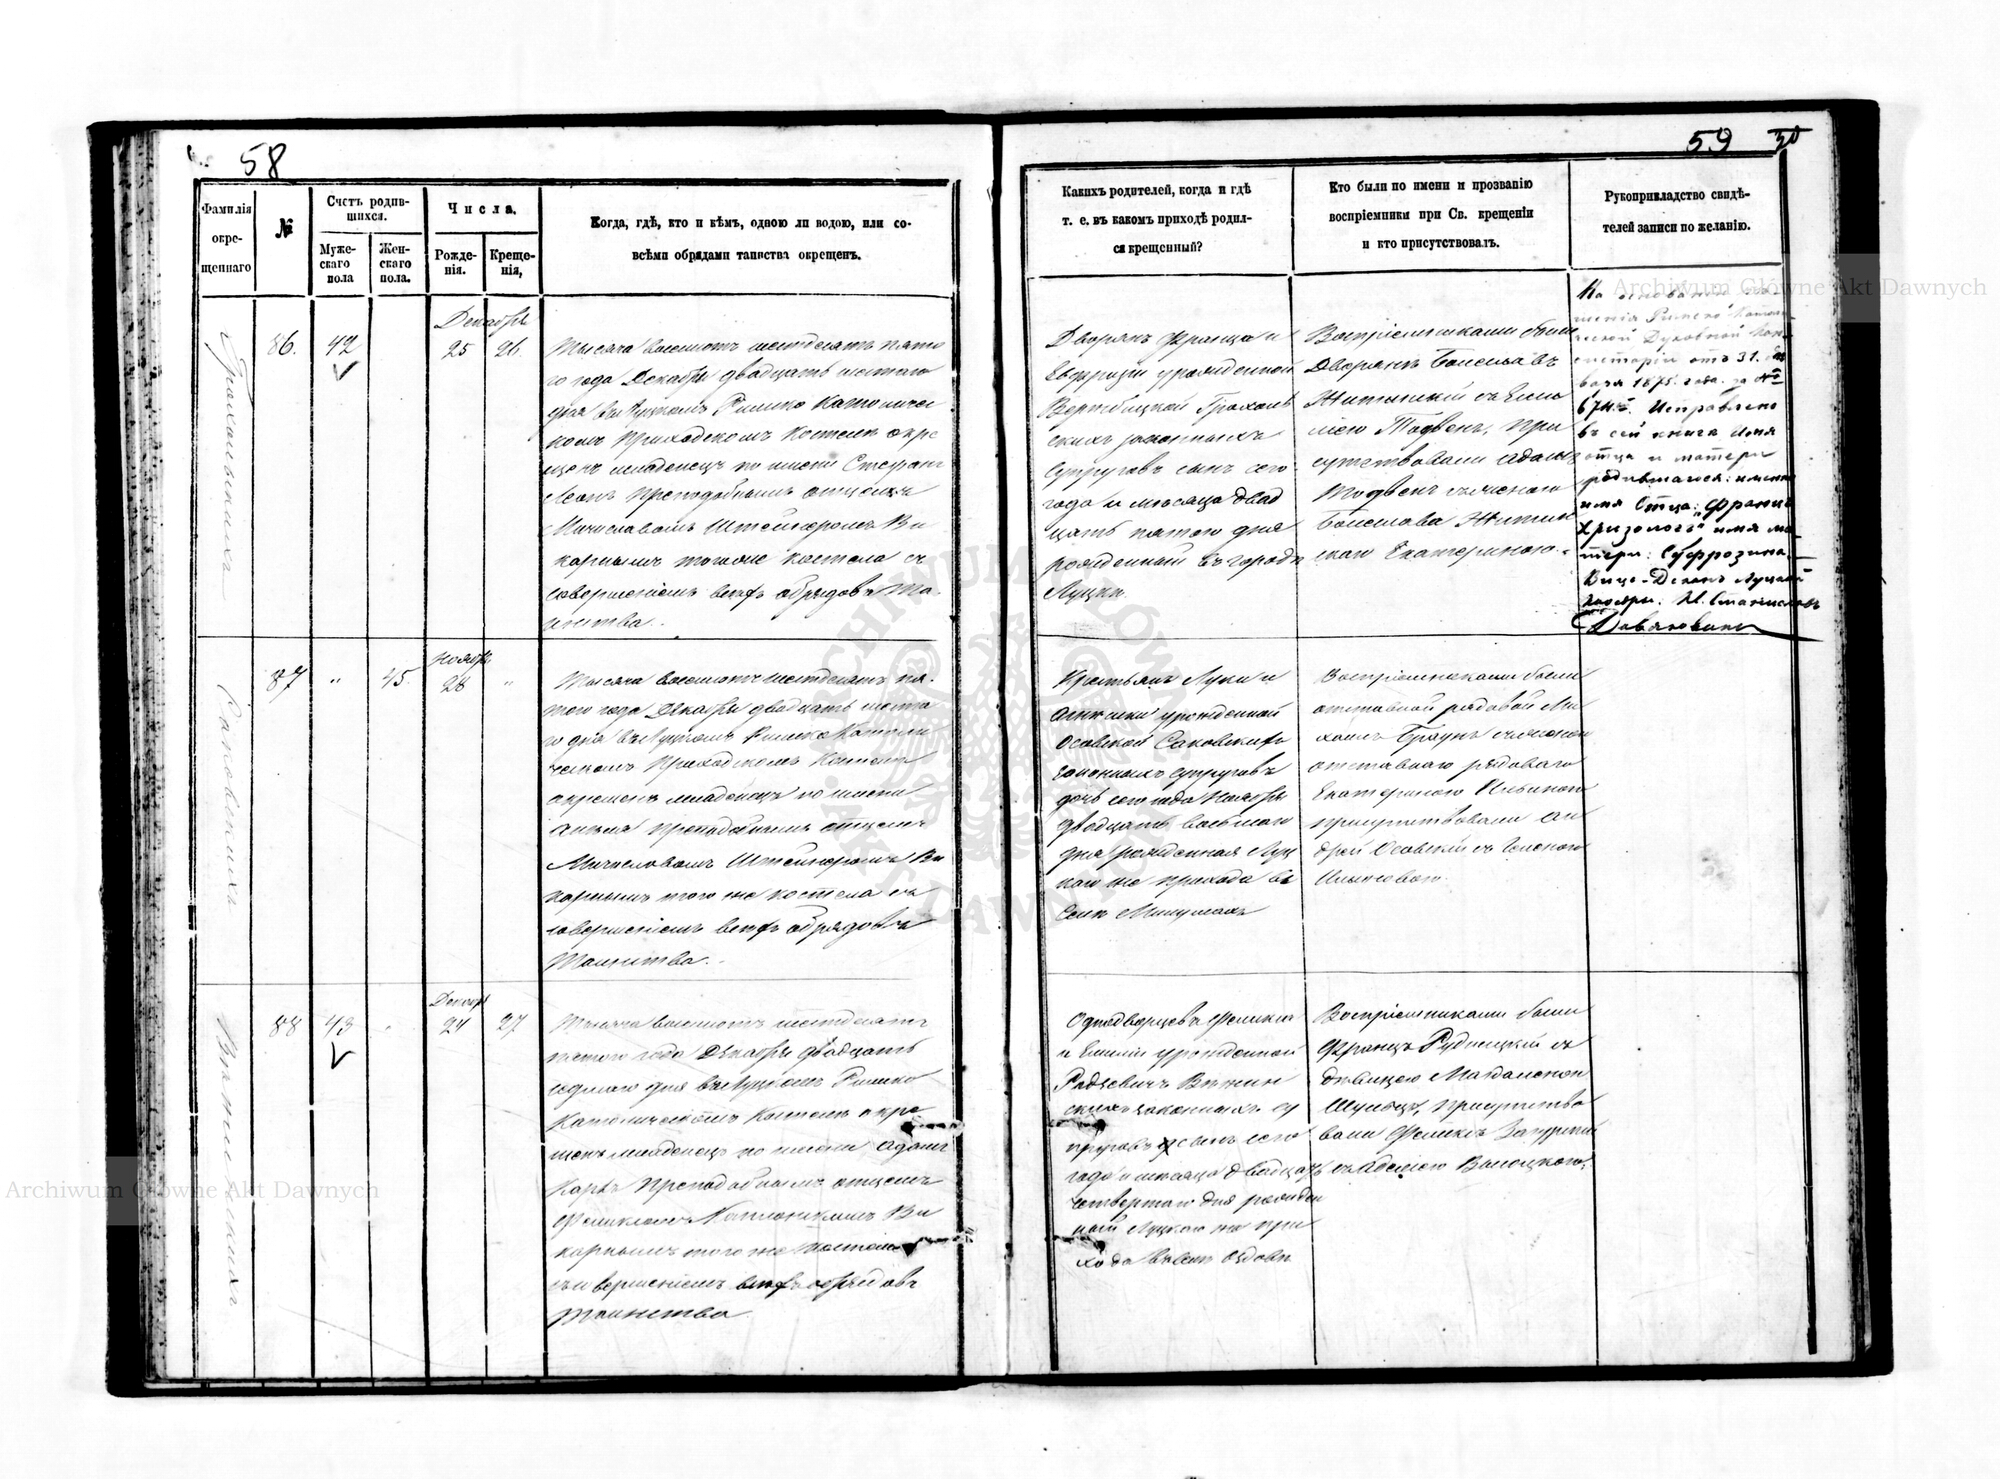 58
Фамилія
окре-
щеннаго
№
Счетъ родив-
шихся.
Муже-
скаго
пола
Жен-
скаго
пола.
Числа.
Рожде-
нія.
Креще-
нія,
Когда, гдѣ, кто и кѣмъ, одною ли водою, или со-
всѣми обрядами таинства окрещенъ.
86.
42
Декабря
25
26
Тысяча восемсотъ шестдесятъ пято
го года Декабря двадцать шестаго
дня въ Луцкомъ Римско Католичес
комъ Приходскомъ Костелѣ окре
щенъ младенецъ по имени Стефанъ
Леонъ Преподобнымъ отцемъ
Мечиславомъ Штейнеромъ Ви
карнымъ тогоже костела съ
совершеніемъ всѣхъ обрядовъ Та-
инства.
Саковскихъ
87
"
45.
Ноября
28
"
Тысяча восемсотъ шестдесятъ пя-
того года Декабря двадцать шеста
го дня въ Луцкомъ Римско Католи
ческомъ Приходскомъ Костелѣ
окрещенъ младенецъ по имени
Преподобнымъ отцемъ
Мечиславомъ Штейнеромъ Ви
карнымъ того же костела съ
совершеніемъ всѣхъ обрядовъ
Таинства.
88
43
Декабря
24
27
Тысяча восемсотъ шестдесятъ
пятого года Декабря двадцать
седмаго дня въ Луцкомъ Римско
Католическомъ Костелѣ окре
щенъ младенецъ по имени Адамъ
Карлъ Преподобнымъ отцемъ
Феликсомъ Ви
карнымъ того же Костела
съ совершеніемъ всѣхъ обрядовъ
Таинства
59 30
Какихъ родителей, когда и гдѣ
т. е. въ какомъ приходѣ родил-
ся крещенный?
Кто были по имени и прозванію
воспріемники при Св. крещеніи
и кто присутствовалъ.
Рукоприкладство свидѣ-
телей записи по желанію.
Дворянъ Франца и
Евфрозіи урожденной
Вержбицкой Грохоль
скихъ законныхъ
Супруговъ сынъ сего
года и мѣсяца двад
цать пятого дня
рожденный въ городѣ
Луцкѣ.
Воспріемниками были
Дворянъ Болеславъ
Житынскій съ Еми
ліею Тодвенъ, При
сутствовали Адамъ
Тодвенъ съ женою
Болеслава Житын
скаго Екатериною.
На основаніи
шенія Римско Католи
ческой Духовной Кон
систоріи отъ 31. Ян
варя 1875 года за №
674. Исправлено
въ сей книгѣ имя
отца и матери
родившагося: именно
имя Отца: „Францъ
Хризологъ" имя ма
тери: Евфрозина
Вице-Деканъ Луцкій
Кс. Станиславъ
Крестьянъ Луки и
урожденной
Осовской Саковскихъ
законныхъ супруговъ
дочь сего года Ноября
двадцать восьмого
дня рожденная Луц
каго же прихода въ
селѣ
Воспріемниками были
отставной рядовой Ми
хаилъ Браунъ съ женою
отставнаго рядоваго
Екатериною
Присутствовали Ан
дрей Осовскій съ
Однодворцевъ Феликса
и Емиліи урожденной
Радзевичъ
скихъ законныхъ су
пруговъ сынъ сего
года и мѣсяца двадцать
четвертаго дня рожден
ный Луцкаго же при
хода въ селѣ
Воспріемниками были
Францъ Рудницкій съ
дѣвицею Магдаленою
Шулецъ, Присутство
вали Феликсъ
Archiwum Główne Akt Dawnych
Archiwum Główne Akt Dawnych